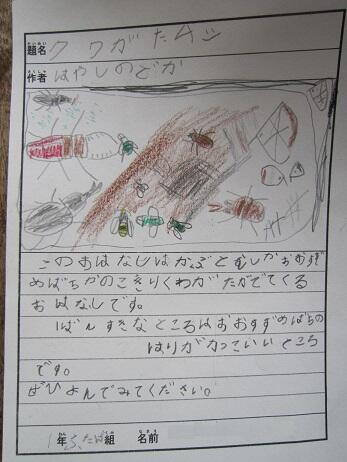 だいめい
題名 クワがたムシ
さくしゃ
作者 はやしのどか
このおはなしはかぶとむしかおおすず
めばちかのこきりくわがたがでてくる
おはなしです。
ばんすきなところはおおすずめばちの
はりがカっこいいところ
です。
ぜひよんでみてください。
1年ふたば組 名前
ねん くみ なまえ